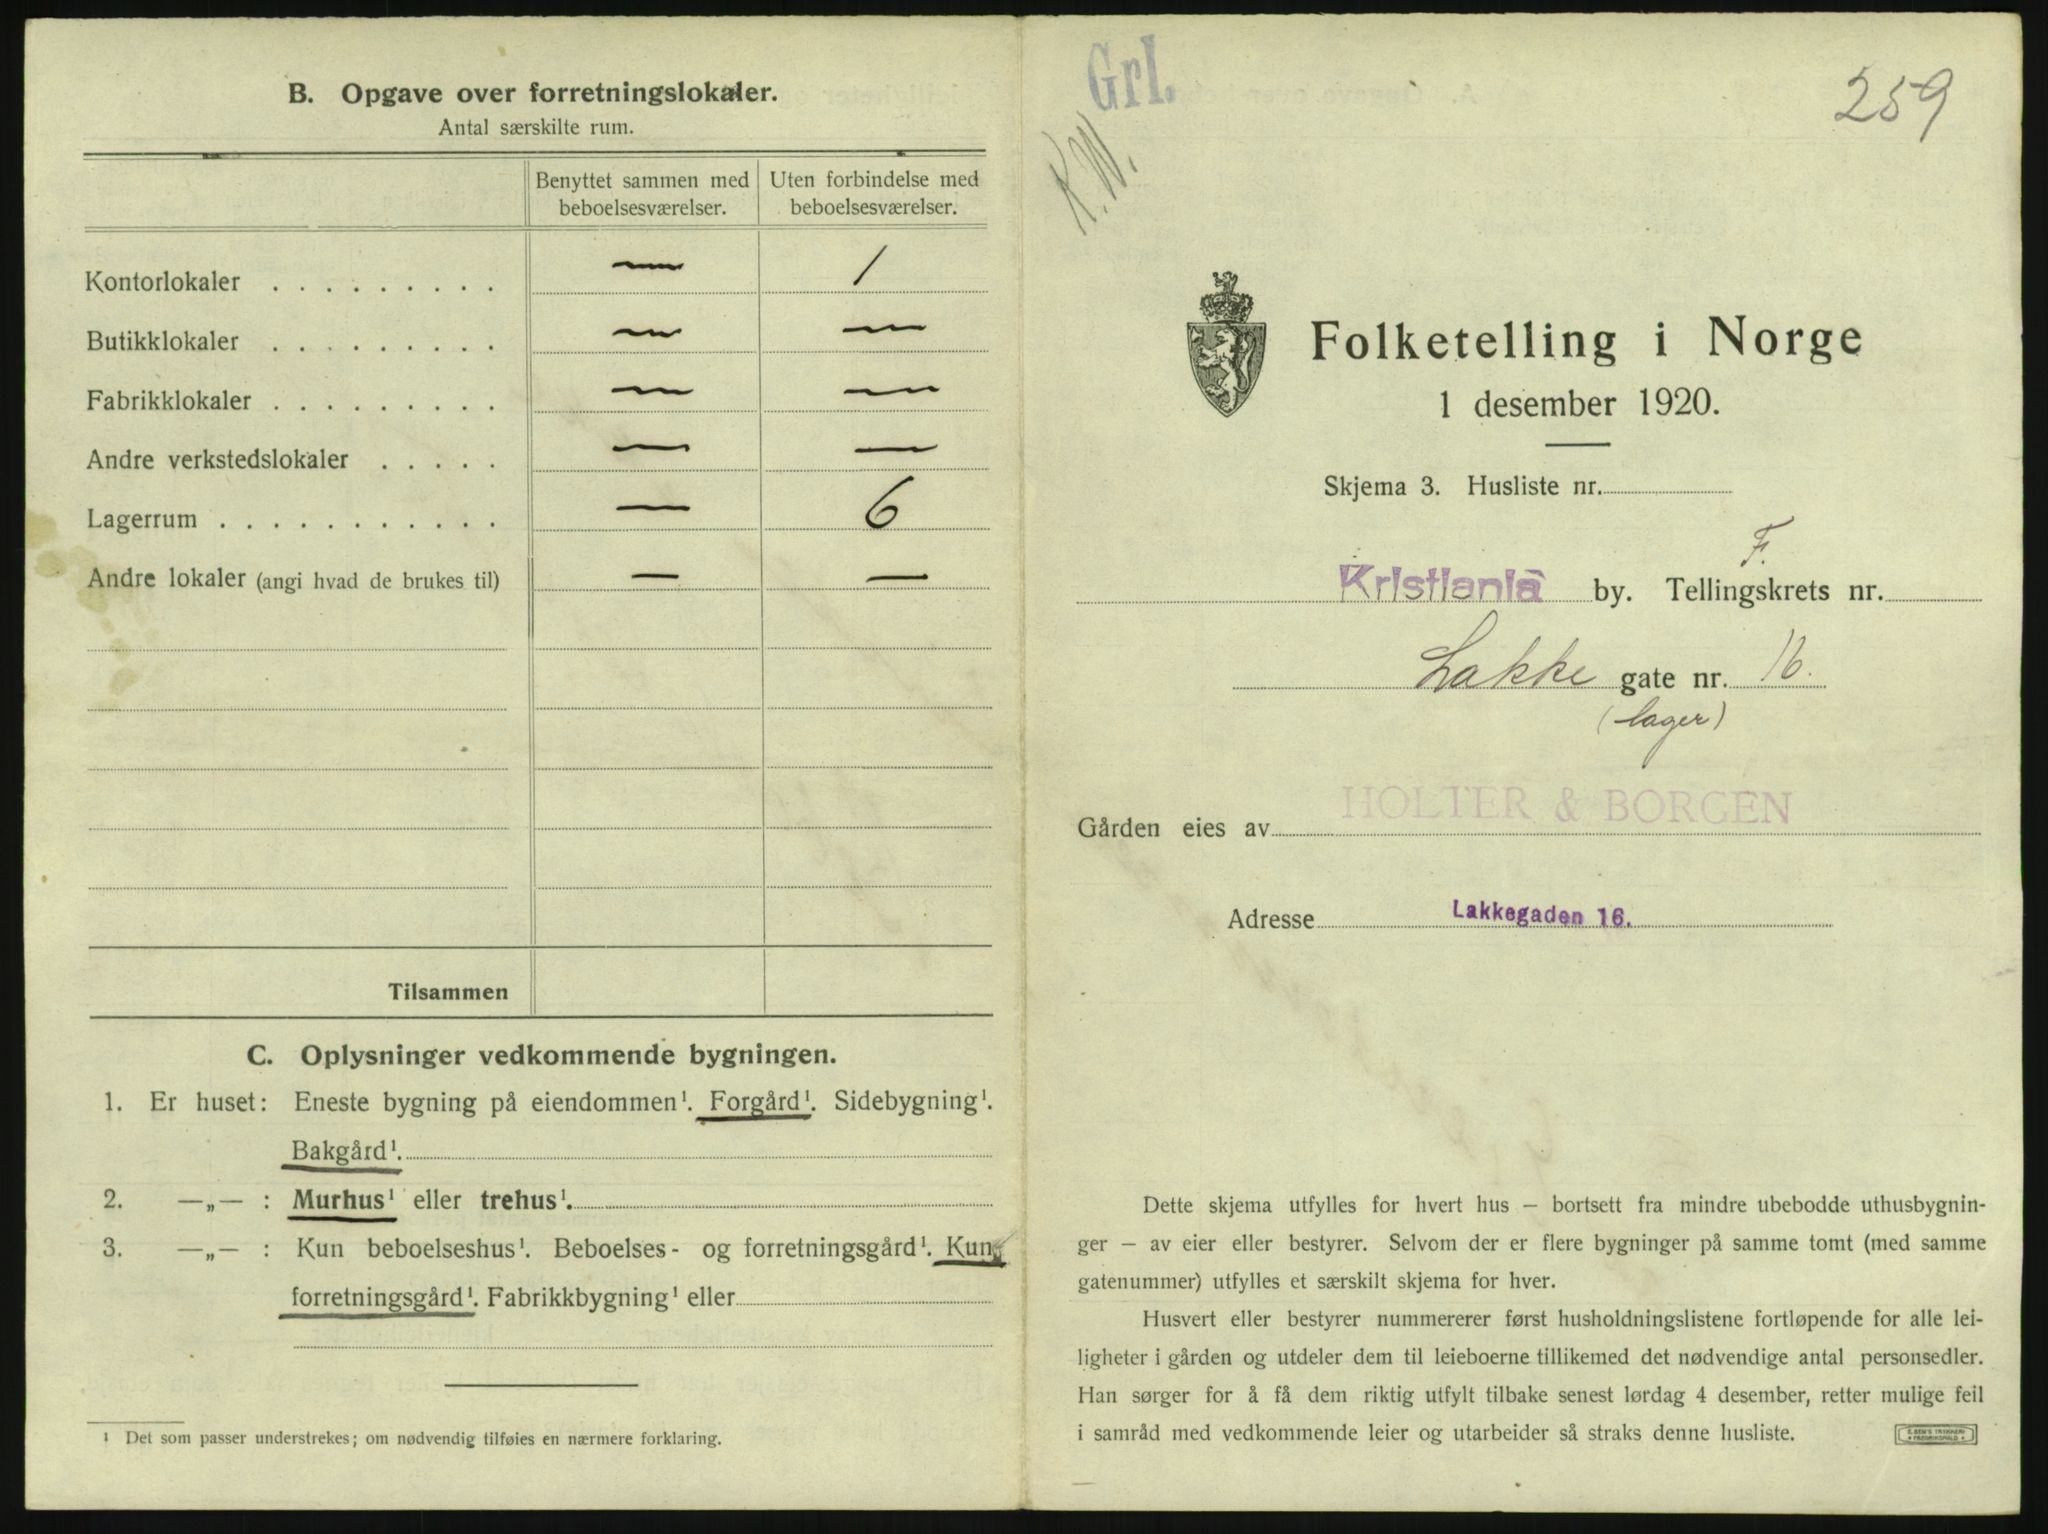 B. Opgave over forretningslokaler.
Antal særskilte rum.
Benyttet sammen med beboelsesværelser.
Uten forbindelse med beboelsesværelser.
Kontorlokaler . . . . . . . . . — 1
Butikklokaler . . . . . . . . . — —
Fabrikklokaler . . . . . . . . . — —
Andre verkstedslokaler . . . . . — —
Lagerrum . . . . . . . . . . . . — 6
Andre lokaler (angi hvad de brukes til) — —
Tilsammen
C. Oplysninger vedkommende bygningen.
1. Er huset: Eneste bygning på eiendommen¹. Forgård¹. Sidebygning¹.
Bakgård¹.
2. —„— : Murhus¹ eller trehus¹.
3. —„— : Kun beboelseshus¹. Beboelses- og forretningsgård¹. Kun
forretningsgård¹. Fabrikkbygning¹ eller
¹ Det som passer understrekes; om nødvendig tilføies en nærmere forklaring.
Grl.
259
K.W.
Folketelling i Norge
1 desember 1920.
Skjema 3. Husliste nr.
F.
Kristiania by. Tellingskrets nr.
Lakke gate nr. 16.
(lager)
HOLTER & BORGEN
Gården eies av
Adresse Lakkegaden 16.
Dette skjema utfylles for hvert hus – bortsett fra mindre ubebodde uthusbygnin-
ger – av eier eller bestyrer. Selvom der er flere bygninger på samme tomt (med samme
gatenummer) utfylles et særskilt skjema for hver.
Husvert eller bestyrer nummererer først husholdningslistene fortløpende for alle lei-
ligheter i gården og utdeler dem til leieboerne tillikemed det nødvendige antal personsedler.
Han sørger for å få dem riktig utfylt tilbake senest lørdag 4 desember, retter mulige feil
i samråd med vedkommende leier og utarbeider så straks denne husliste.